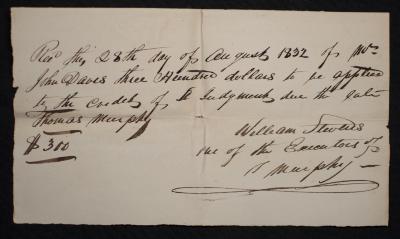 Recd this 28th day of august 1832 of Mr
John Daves three Hundred dollars to be applied
to the credit of Judgment due the late
Thomas Murphy
$300
William
one of the Executors of
T Murphy